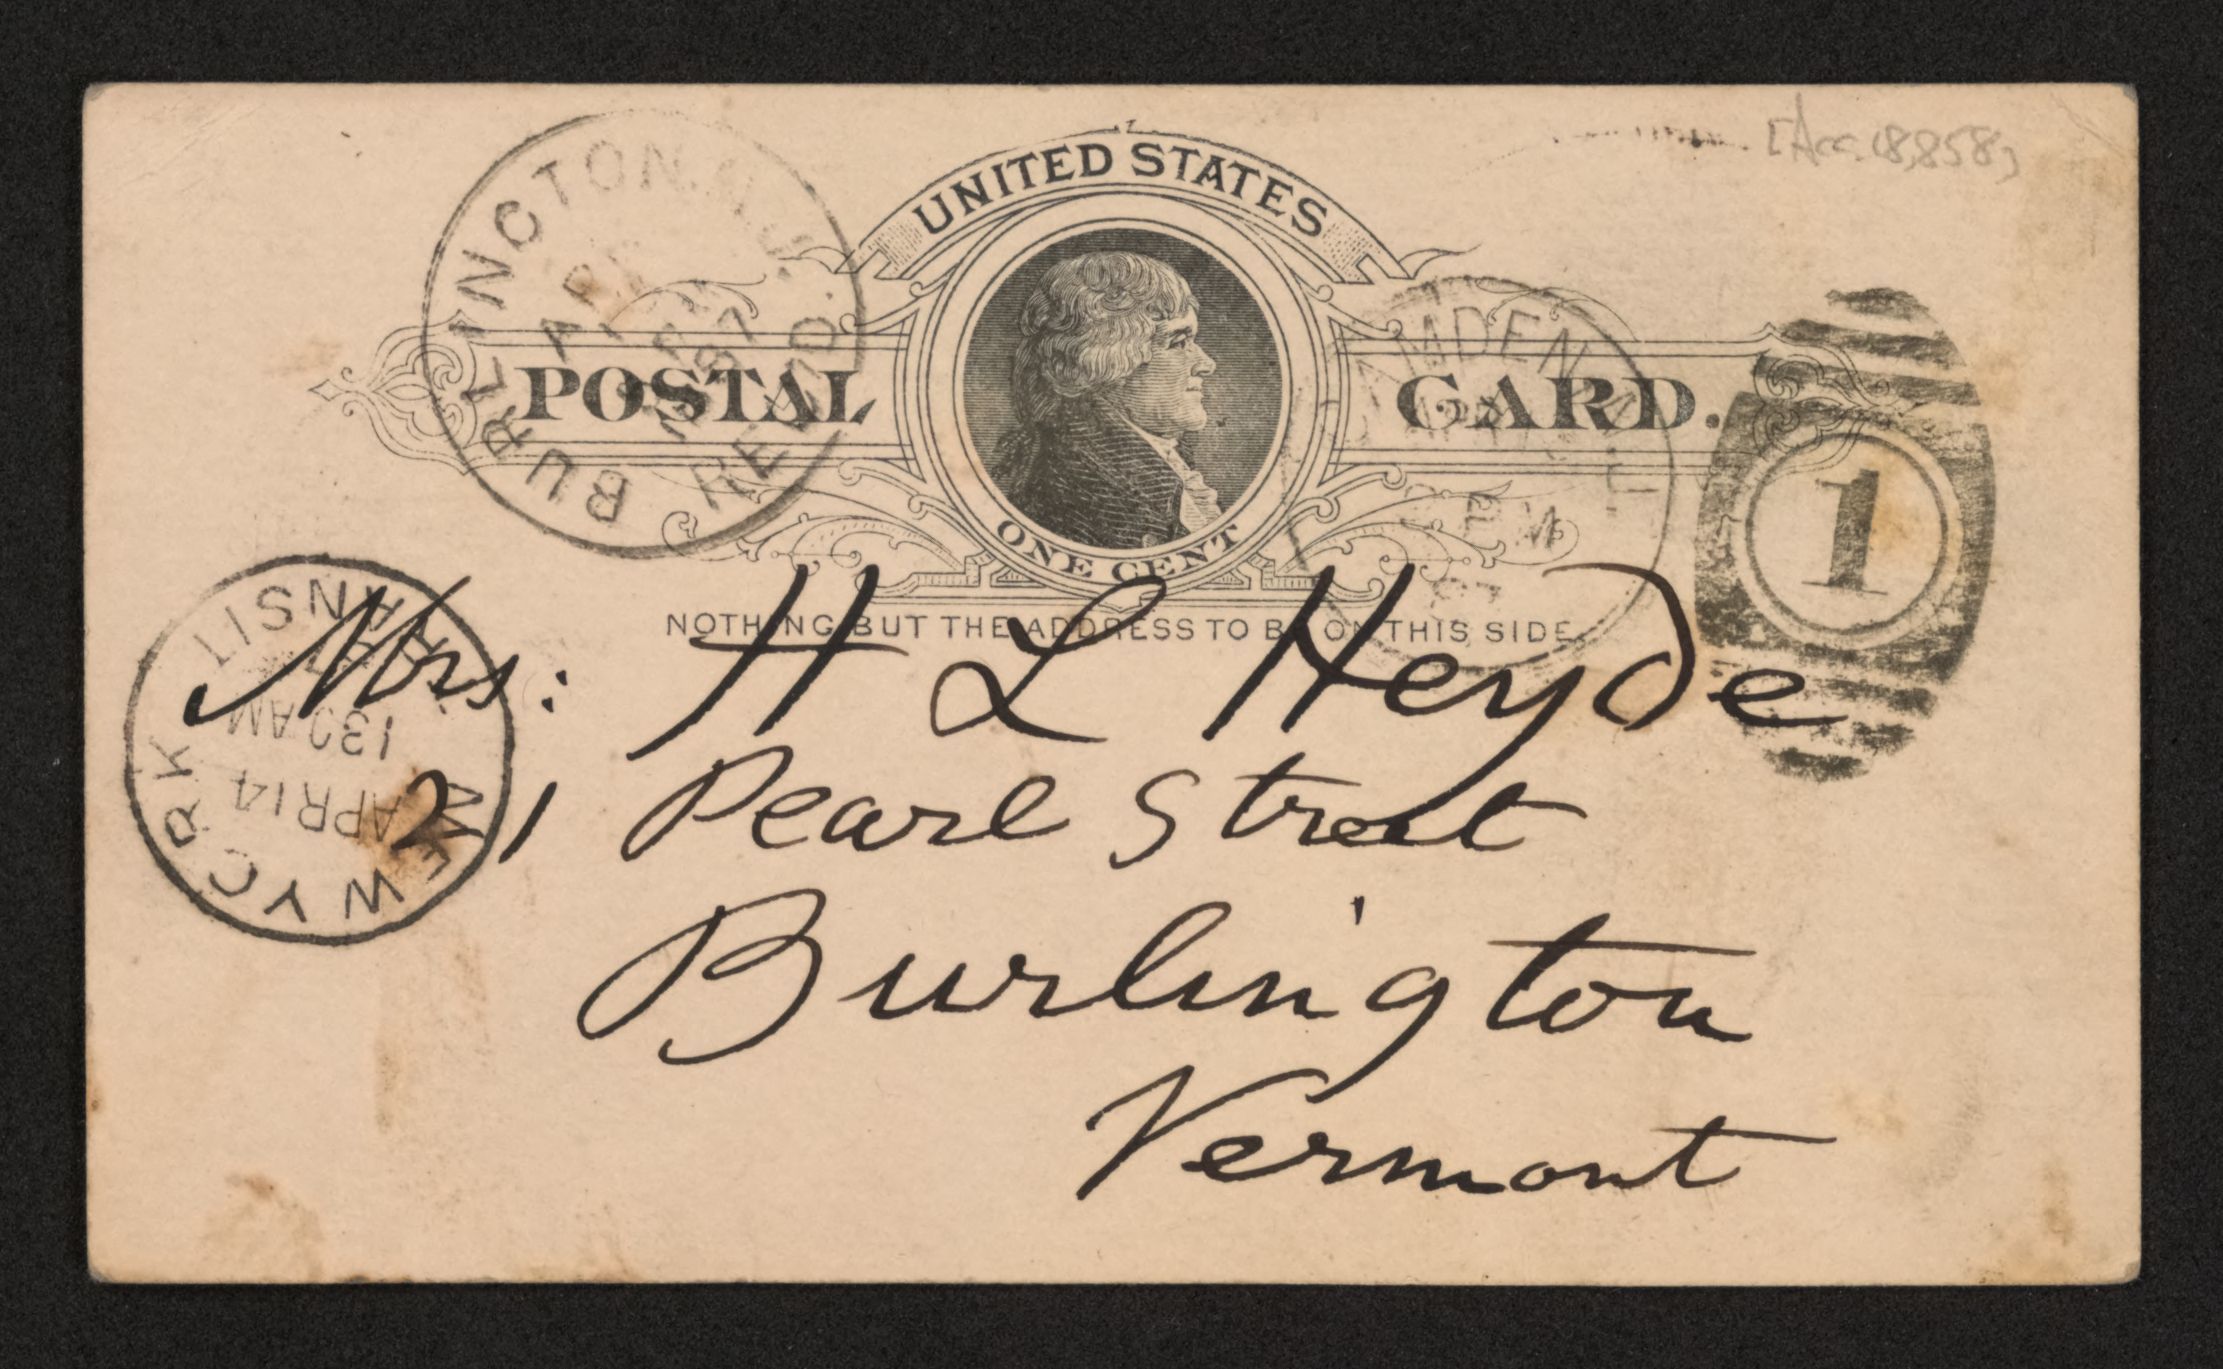 [Acc. 18,858]
UNITED STATES
POSTAL CARD.
ONE CENT
NOTHING BUT THE ADDRESS TO BE ON THIS SIDE.
BURLINGTON. N.J.
APR
REC'D.
CAMDEN N.J.
PM
87
1
NEW YORK
APR 14
130 AM
TRANSIT
Mrs: H L Heyde
21 Pearl Street
Burlington
Vermont